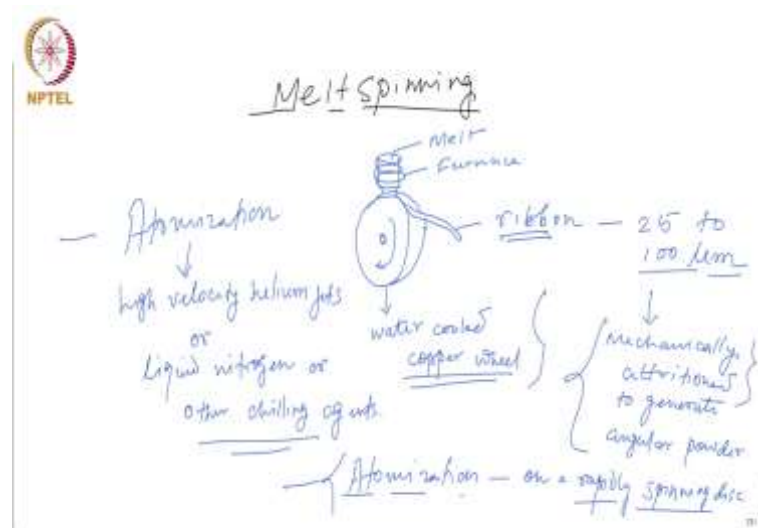 NPTEL
Melt Spinning
Melt
Furnace
ribbon — 25 to
100 µm
— Atomization
high velocity helium jets
or
liquid nitrogen or
other chilling agents.
water cooled
copper wheel
mechanically
attritioned
to generate
angular powder
Atomization — on a rapidly spinning disc